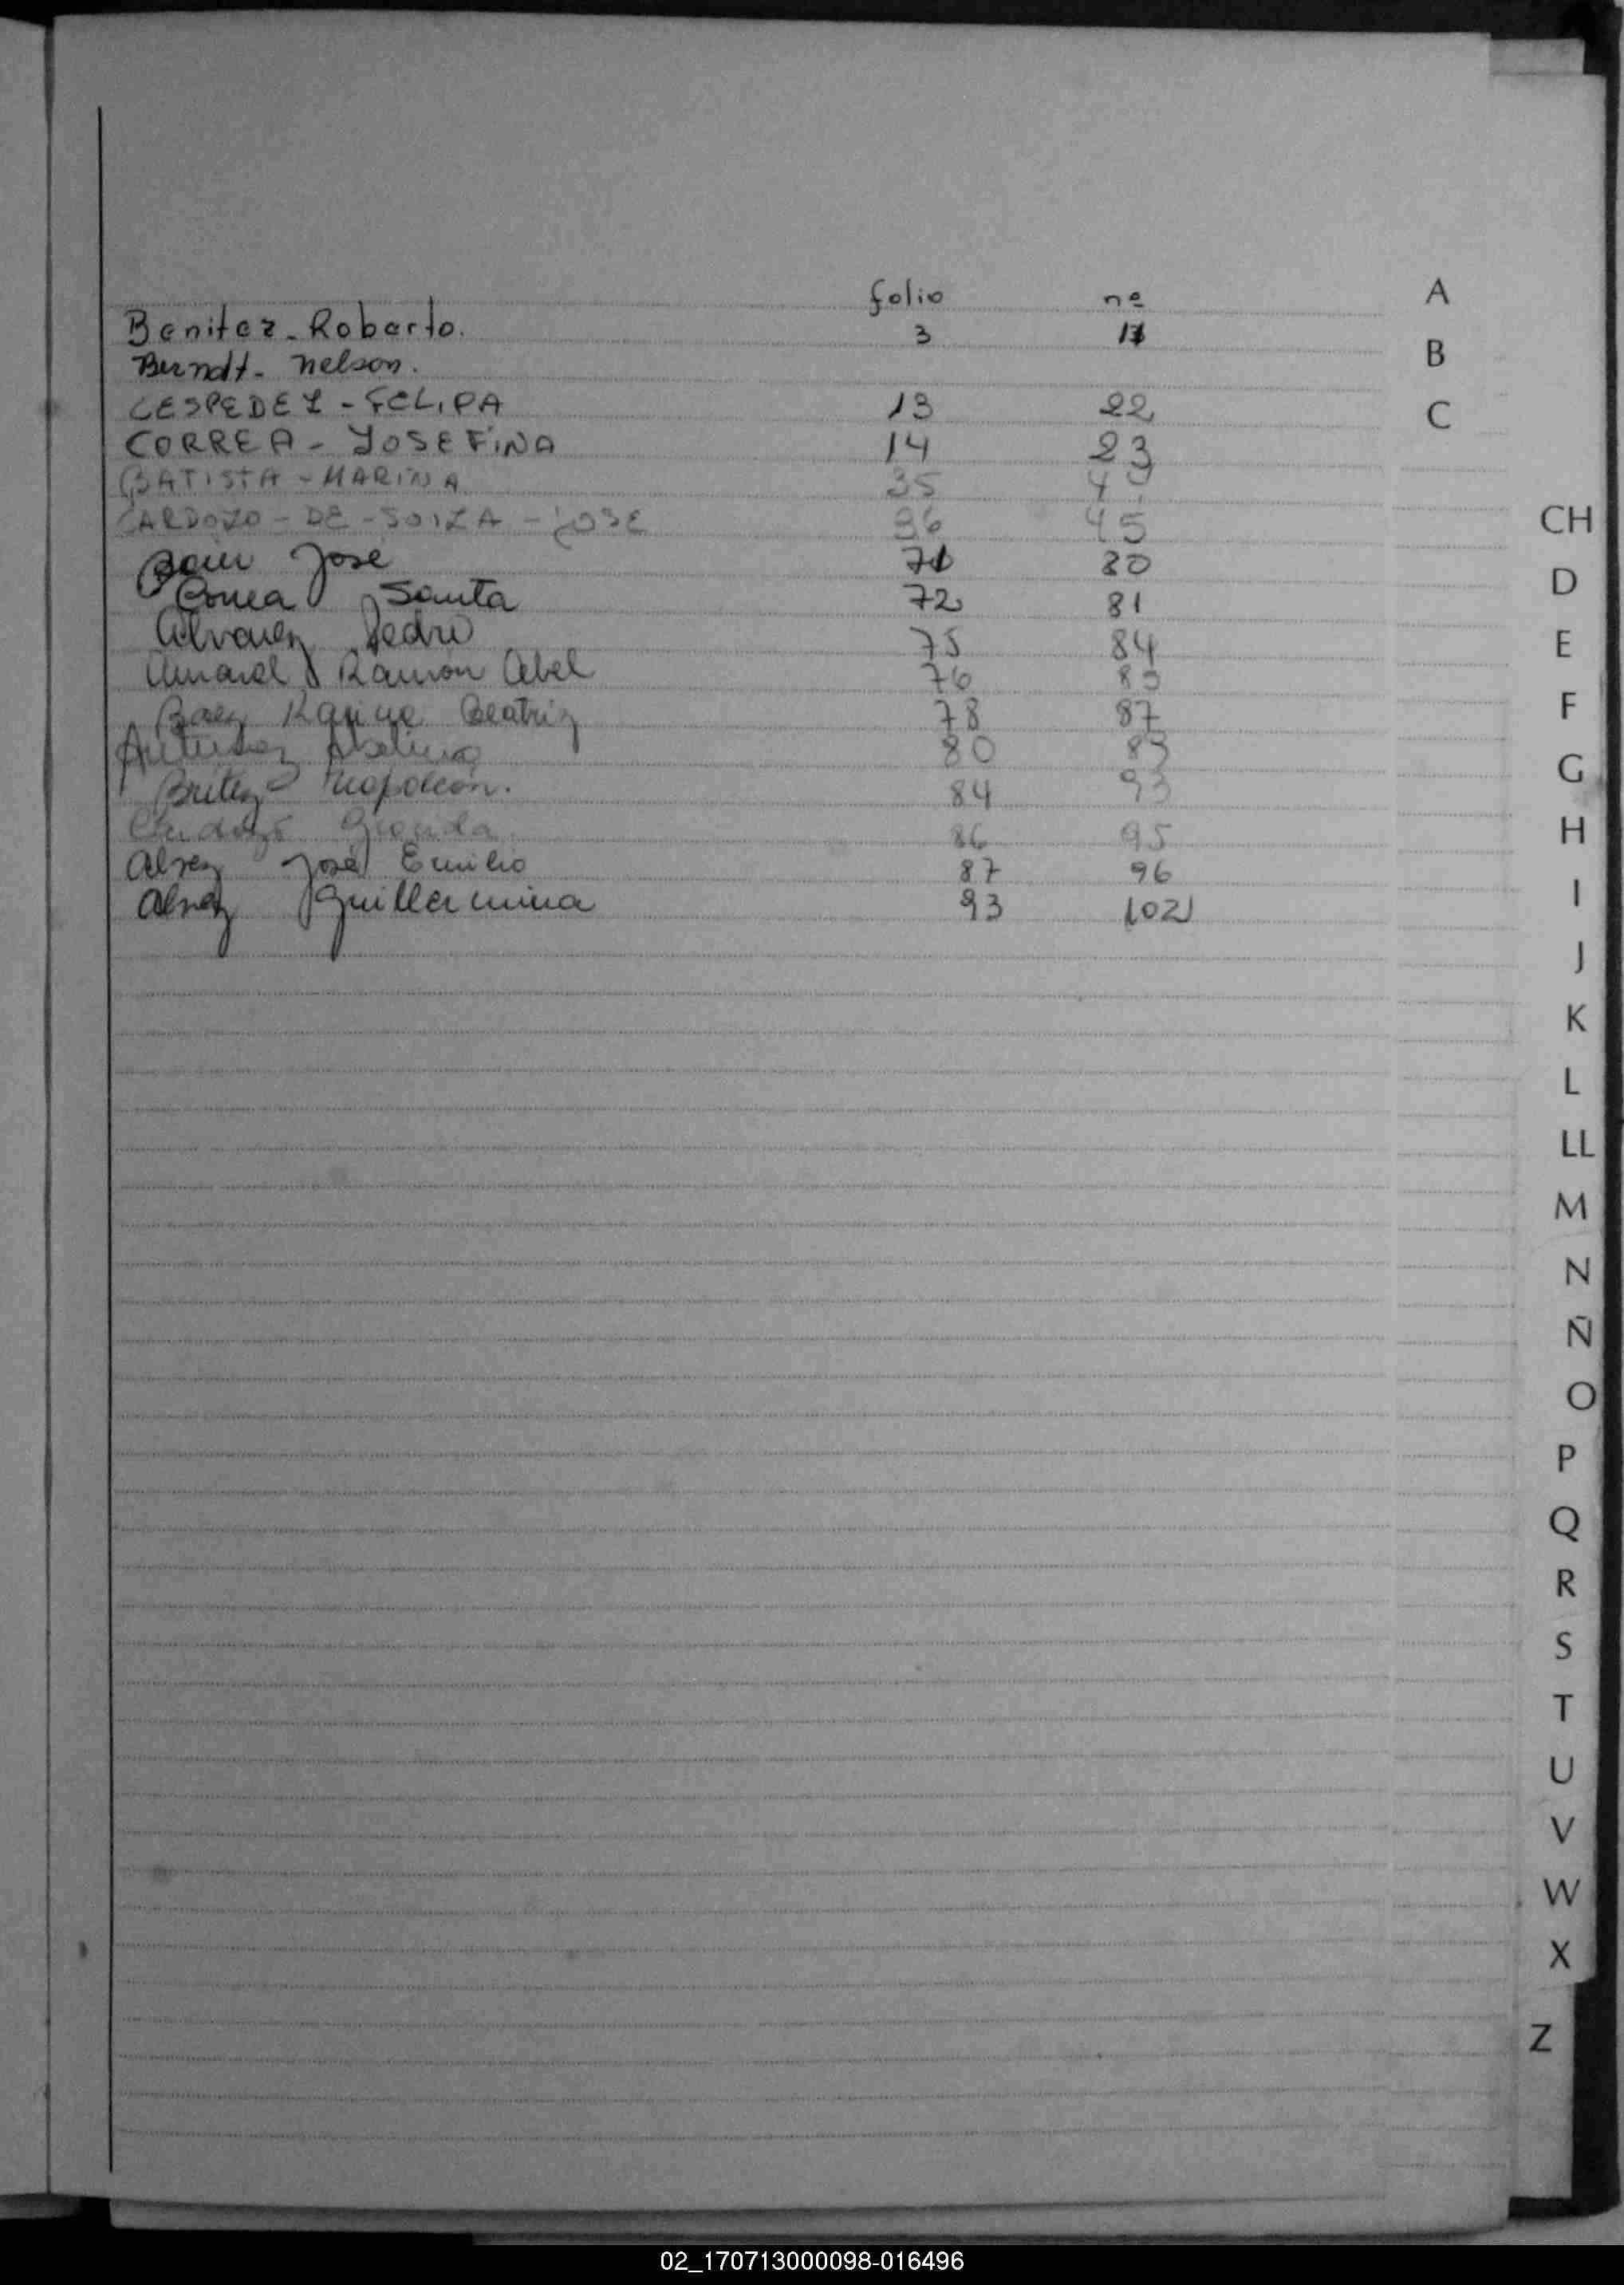 folio nº
Benitez - Roberto. 3
Berndt - Nelson.
CESPEDEZ - FELIPA 13 22
CORREA - JOSEFINA 14 23
BATISTA - MARINA 35
CARDOZO - DE - SOIZA - JOSE 36 45
José 71 80
Correa Santa 72 81
Alvarez Pedro 75 84
Amaral Ramón Abel 76 85
Baez Beatriz 78 87
80 89
Britez Napoleón. 84 93
86 95
Alvez José Emilio 87 96
Alvez Guillermina 93 102
A
B
C
CH
D
E
F
G
H
I
J
K
L
LL
M
N
Ñ
O
P
Q
R
S
T
U
V
W
X
Z
02_170713000098-016496